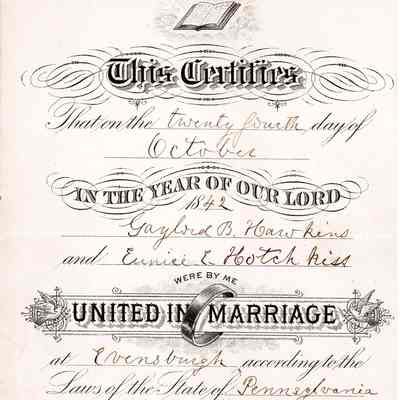 This Certifies
That on the twenty fourth day of
October
IN THE YEAR OF OUR LORD
1842
Gaylord B. Hawkins
and Eunice E Hotchkiss
WERE BY ME
UNITED IN MARRIAGE
at Evensburgh according to the
Laws of the State of Pennsylvania